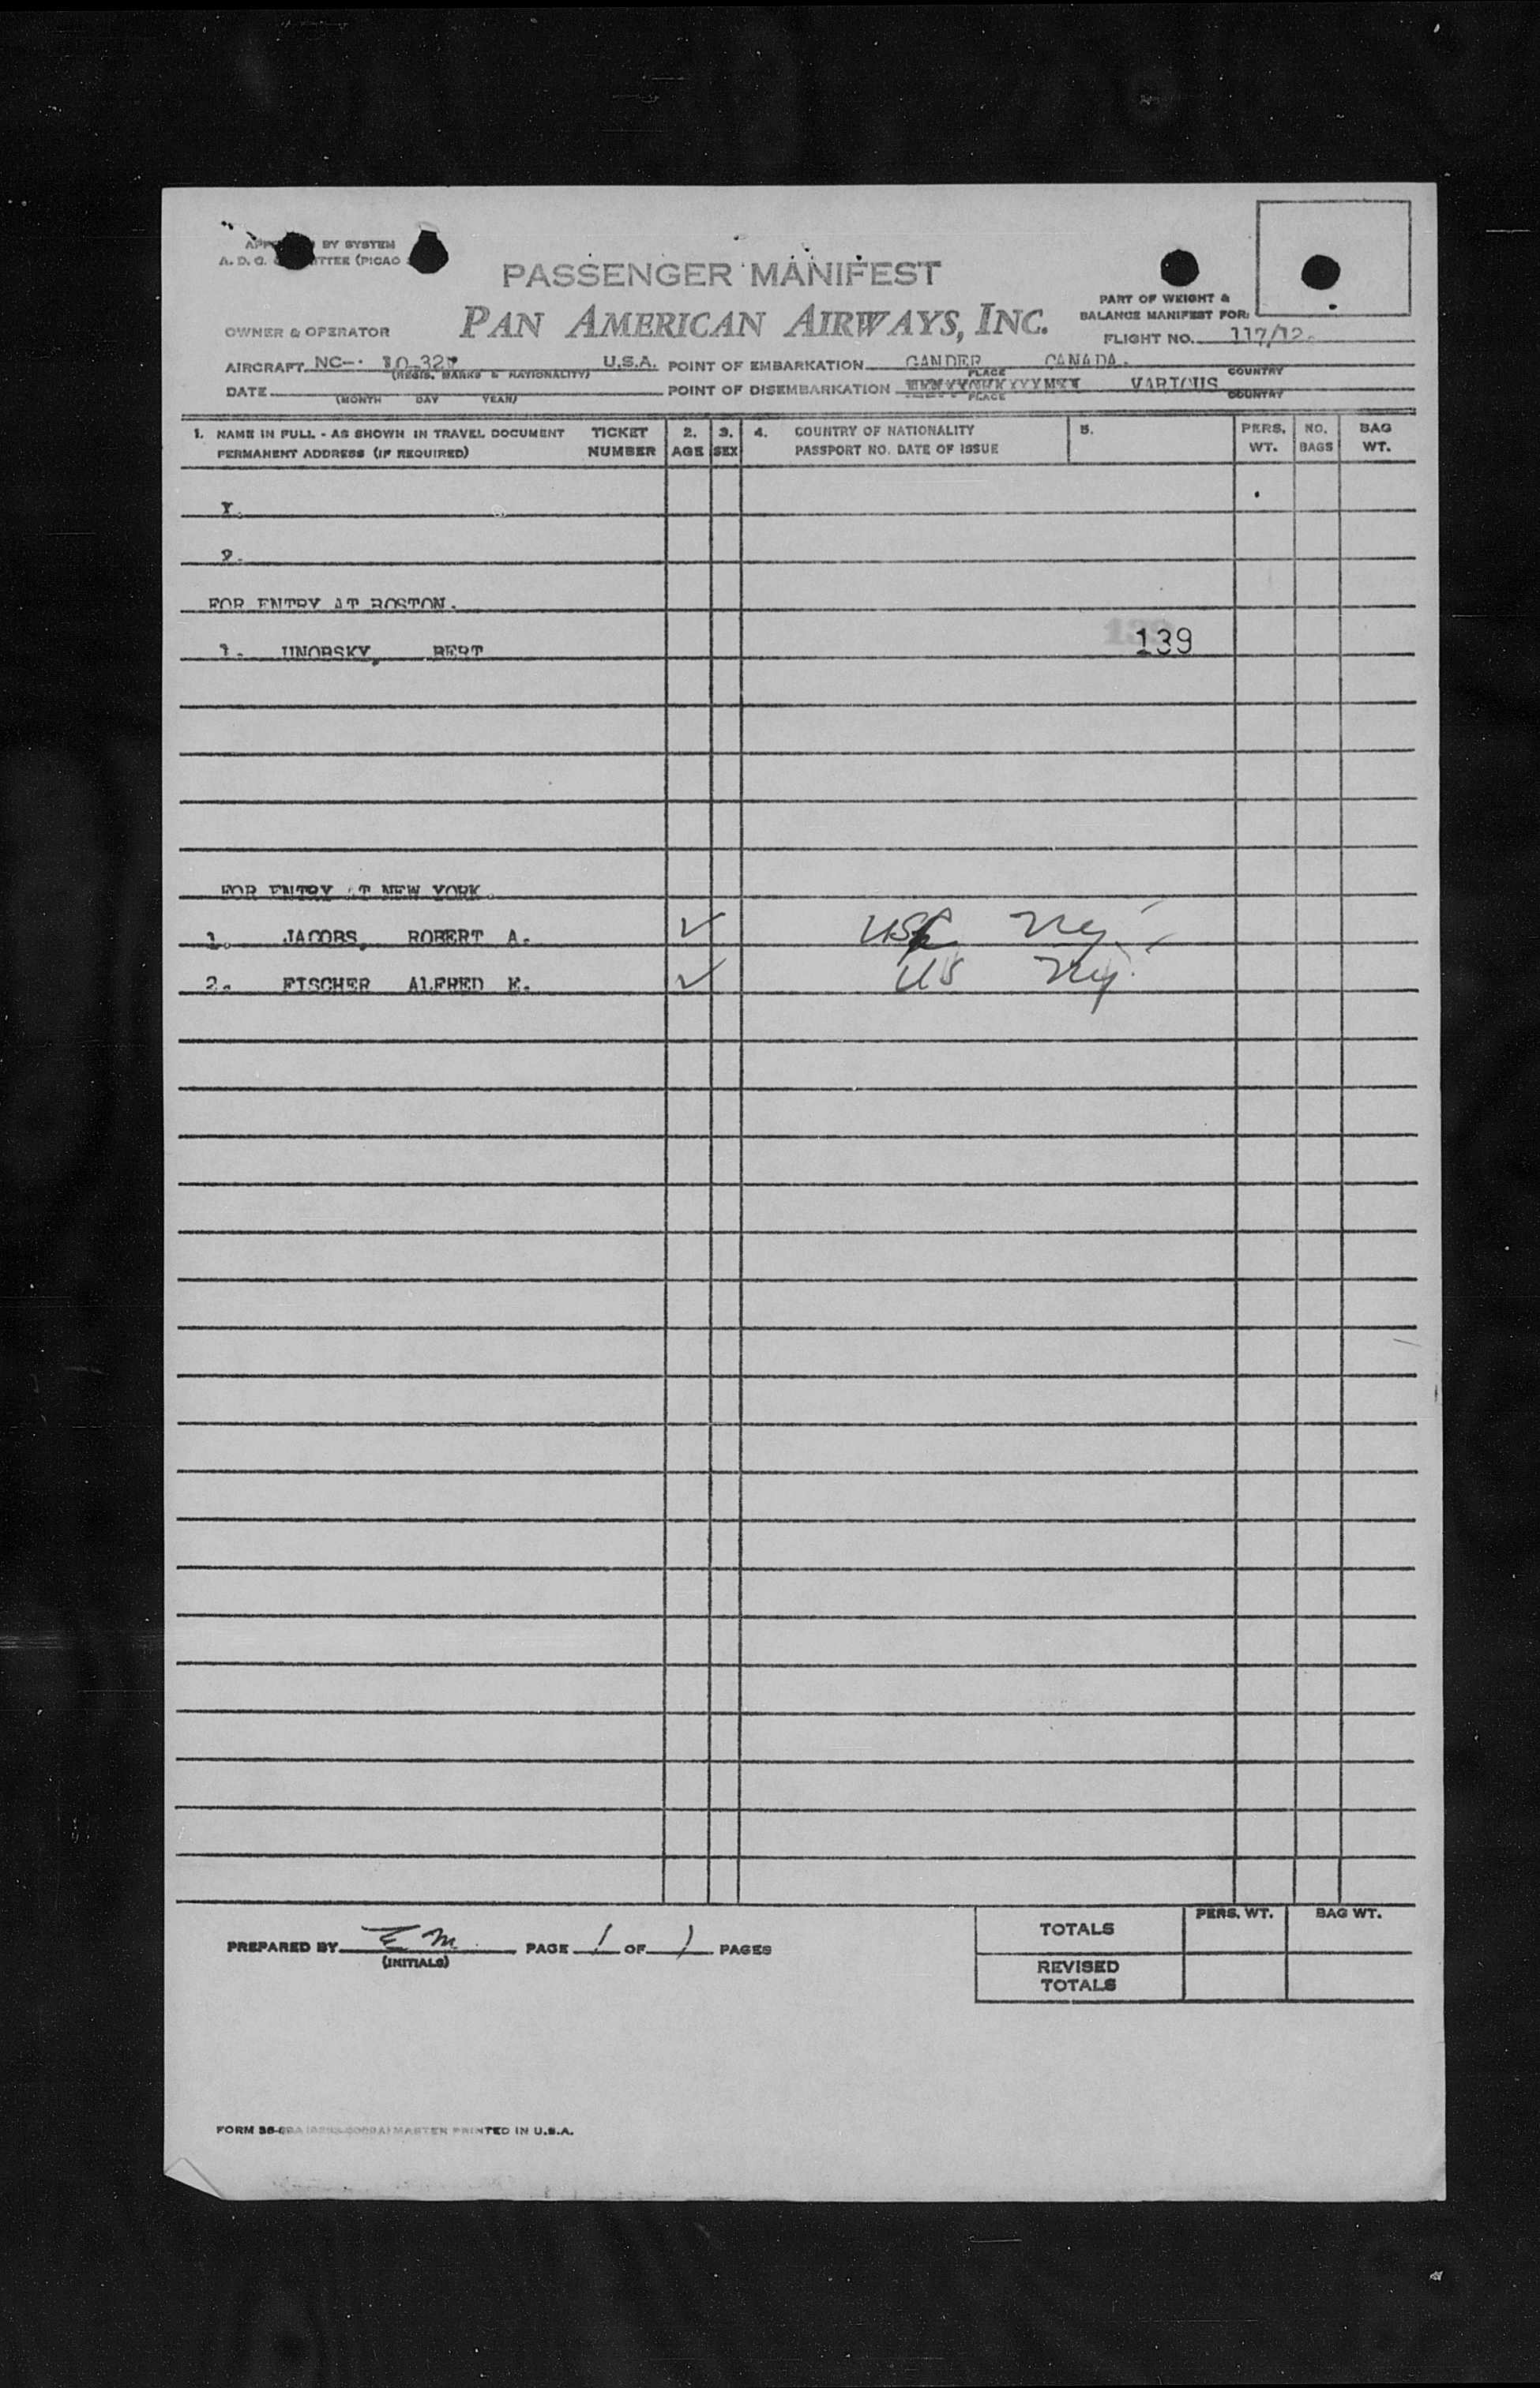 BY SYSTEM
A. D. C. (PICAO
PASSENGER MANIFEST
PAN AMERICAN AIRWAYS, INC.
PART OF WEIGHT &
BALANCE MANIFEST FOR:
OWNER & OPERATOR
FLIGHT NO. 117/12.
AIRCRAFT NC- U.S.A. POINT OF EMBARKATION GANDER CANADA.
(REGIS. MARKS & NATIONALITY) PLACE COUNTRY
DATE POINT OF DISEMBARKATION VARIOUS
(MONTH DAY YEAR) PLACE COUNTRY
1. NAME IN FULL - AS SHOWN IN TRAVEL DOCUMENT TICKET 2. 3. 4. COUNTRY OF NATIONALITY 5. PERS. NO. BAG
PERMANENT ADDRESS (IF REQUIRED) NUMBER AGE SEX PASSPORT NO. DATE OF ISSUE WT. BAGS WT.
2.
FOR ENTRY AT BOSTON.
1. UNOBSKY, BERT 139
FOR ENTRY AT NEW YORK.
1. JACOBS, ROBERT A. ✓
2. FISCHER ALFRED E. ✓ US
PREPARED BY E M. PAGE 1 OF 1 PAGES
(INITIALS)
PERS. WT. BAG WT.
TOTALS
REVISED
TOTALS
FORM MASTER PRINTED IN U.S.A.